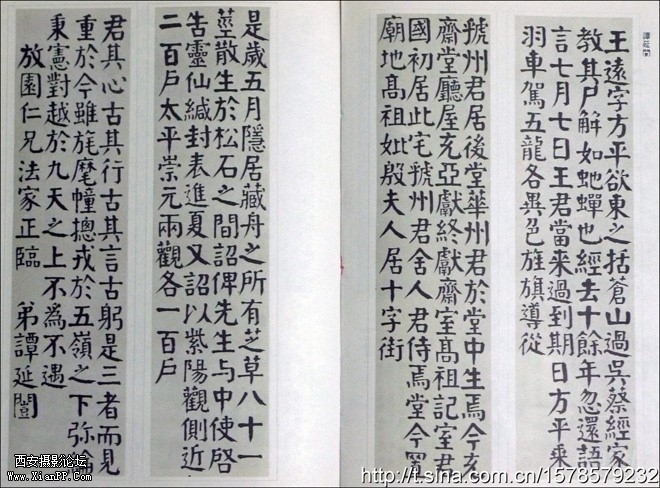 譚延闓
王遠字方平欲東之括蒼山過吳蔡經家
教其尸解如虵蟬也經去十餘年忽還語
言七月七日王君當来過到期日方平乘
羽車駕五龍各異色旌旗導從
虢州君居後堂華州君於堂中生焉今充
齋堂廳屋充亞獻終獻齋室高祖記室君
國初居此宅虢州君舍人君侍焉堂今置
廟地高祖妣殷夫人居十字街
是歲五月隱居藏舟之所有芝草八十一
莖散生於松石之間詔俾先生与中使啓
告靈仙緘封表進夏又詔以紫陽觀側近
二百戶太平崇元兩觀各一百戶
君其心古其行古其言古躬是三者而見
重於今雖旄麾幢摠戎於五嶺之下弥
秉憲對越於九天之上不為不遇
放園仁兄法家正臨 弟譚延闓
西安摄影论坛
www.XianPP.Com
http://t.sina.com.cn/1578579232